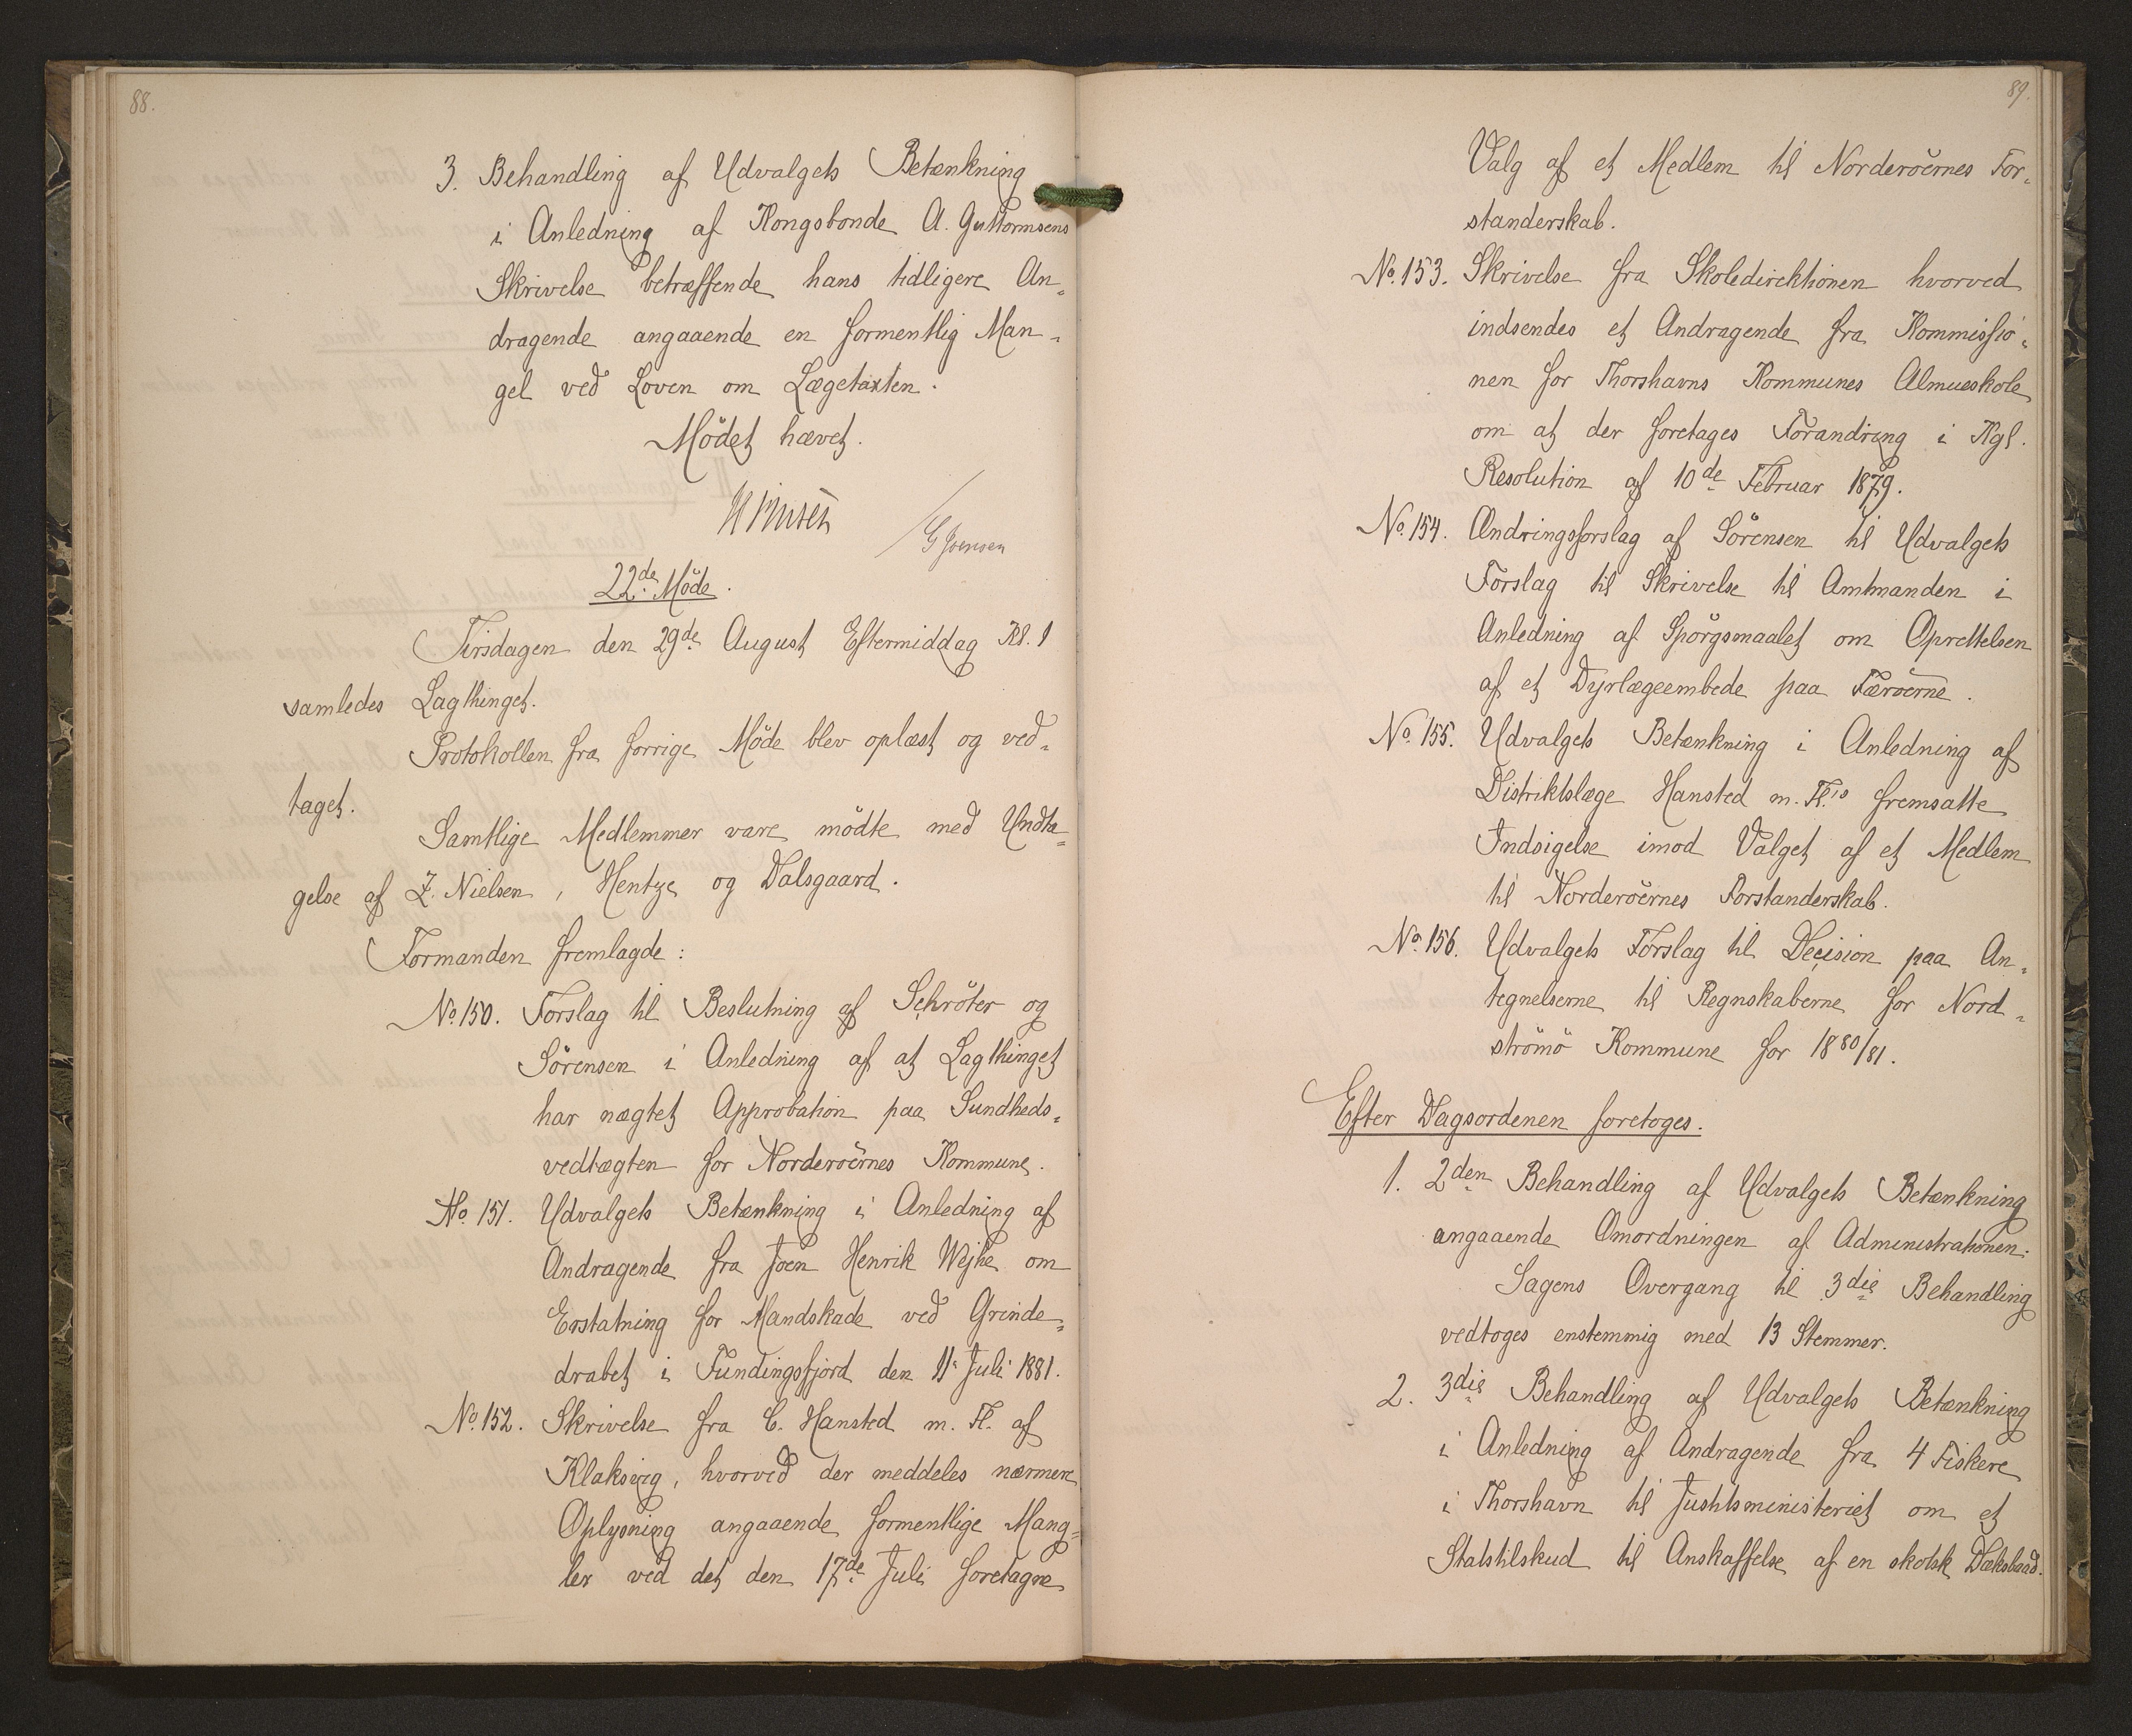 88.
3. Behandling af Udvalgets Betænkning
i Anledning af Kongsbonde A. Guttormsens
Skrivelse betræffende hans tidligere An-
dragende angaaende en formentlig Man-
gel ved Loven om Lægetaxten.
Mödet hævet.
22de Möde.
Tirsdagen den 29de August Eftermiddag Kl. 1
samledes Lagthinget.
Protokollen fra forrige Möde blev oplæst og ved-
taget.
Samtlige Medlemmer vare mödte med Undta-
gelse af Z. Nielsen, Hentze og Dalsgaard.
Formanden fremlagde:
No. 150. Forslag til Beslutning af Schröter og
Sörensen i Anledning af at Lagthinget
har nægtet Approbation paa Sundheds-
vedtægten for Norderöernes Kommune.
No. 151. Udvalgets Betænkning i Anledning af
Andragende fra Joen Henrik Wejhe om
Erstatning for Mandskade ved Grinde-
drabet i Fundingsfjord den 11. Juli 1881.
No. 152. Skrivelse fra C. Hansted m. Fl. af
Klaksvig, hvorved der meddeles nærmere
Oplysning angaaende formentlige Mang-
ler ved det den 17de Juli foretagne
89.
Valg af et Medlem til Norderöernes For-
standerskab.
No. 153. Skrivelse fra Skoledirektionen hvorved
indsendes et Andragende fra Kommissio-
nen for Thorshavns Kommunes Almueskole
om at der foretages Forandring i Kgl.
Resolution af 10de Februar 1879.
No. 154. Ændringsforslag af Sörensen til Udvalgets
Forslag til Skrivelse til Amtmanden i
Anledning af Spörgsmaalet om Oprettelsen
af et Dyrlægeembede paa Færöerne.
No. 155. Udvalgets Betænkning i Anledning af
Distriktslæge Hansted m. Fl.'s fremsatte
Indsigelse imod Valget af et Medlem
til Norderöernes Forstanderskab.
No. 156. Udvalgets Forslag til Decision paa An-
tegnelserne til Regnskaberne for Nord-
strömö Kommune for 1880/81.
Efter Dagsordenen foretoges.
1. 2den Behandling af Udvalgets Betænkning
angaaende Omordningen af Administrationen.
Sagens Overgang til 3die Behandling
vedtoges enstemmig med 13 Stemmer.
2. 3die Behandling af Udvalgets Betænkning
i Anledning af Andragende fra 4 Fiskere
i Thorshavn til Justitsministeriet om et
Statstilskud til Anskaffelse af en skotsk Dæksbaad.